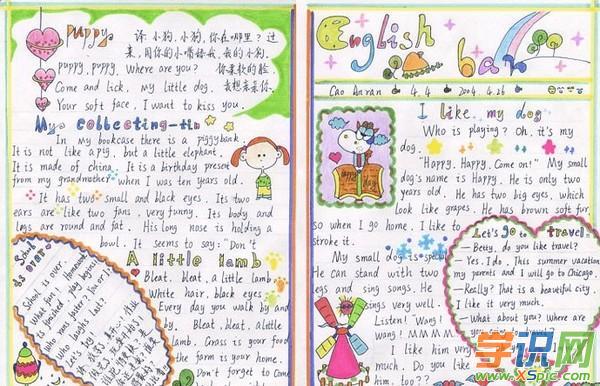 Puppy
诗 小狗,小狗,你在哪里?过
来,用你的小嘴舔我,我的小狗.
puppy, puppy. Where are you? 你柔软的脸.
Come and lick, my little dog. 我想亲亲你.
Your soft face, I want to kiss you.
My collecting-tin
In my bookcase there is a piggybank.
It is not like a pig, but a little elephant.
It is made of china. It is a birthday present
from my grandmother when I was ten years old.
It has two small and black eyes. Its two
ears are like two fans, very funny. Its body and
legs are round and fat. His long nose is holding a
bowl. It seems to say: "Don't
School is over
School is over.
What fun! Homework
finished, play begins.
Who runs faster? You or I?
Who laughs last?
A little lamb
Bleat, bleat, a little lamb.
White hair, black eyes.
Every day you walk by and
by. Bleat, bleat, a little
lamb. Grass is your food
the farm is your home.
Don't forget to come
English bar
Cao Anran 4.4 2004.4.26
I like my dog
Who is playing? Oh, it's my
dog.
"Happy, Happy, Come on!" My small
dog's name is Happy. He is only two
years old. He has two big eyes, which
look like grapes. He has brown fur,
so when I go home. I like to
stroke it.
My small dog is special
He can stand with two
legs and sing songs. He
sings very much.
Listen! Wang!
Wang! WMMMM
I like him very
much. Do you like
him,
Let's go to travel.
— Betty, do you like travel?
— Yes. I do. This summer vacation,
my parents and I will go to Chicago.
— Really? That is a beautiful city.
I like it very much.
— What about you? Where are
you going to travel?
学识网
www.XSpic.com